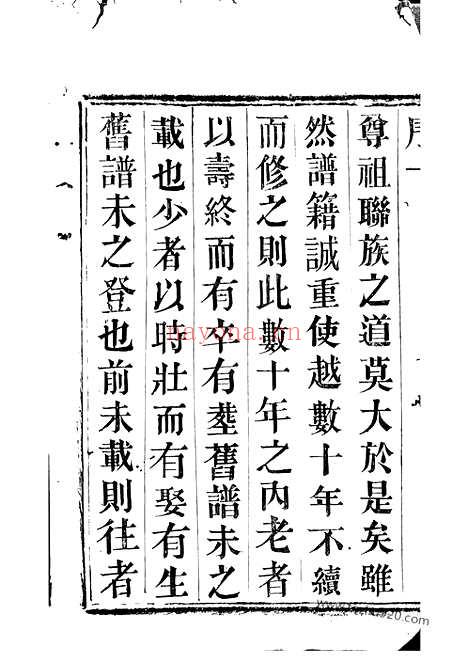 序
尊祖聯族之道莫大於是矣雖
然譜籍誠重使越數十年不續
而修之則此數十年之內老者
以壽終而有卒有塟舊譜未之
載也少者以時壯而有娶有生
舊譜未之登也前未載則往者
nayona.cn